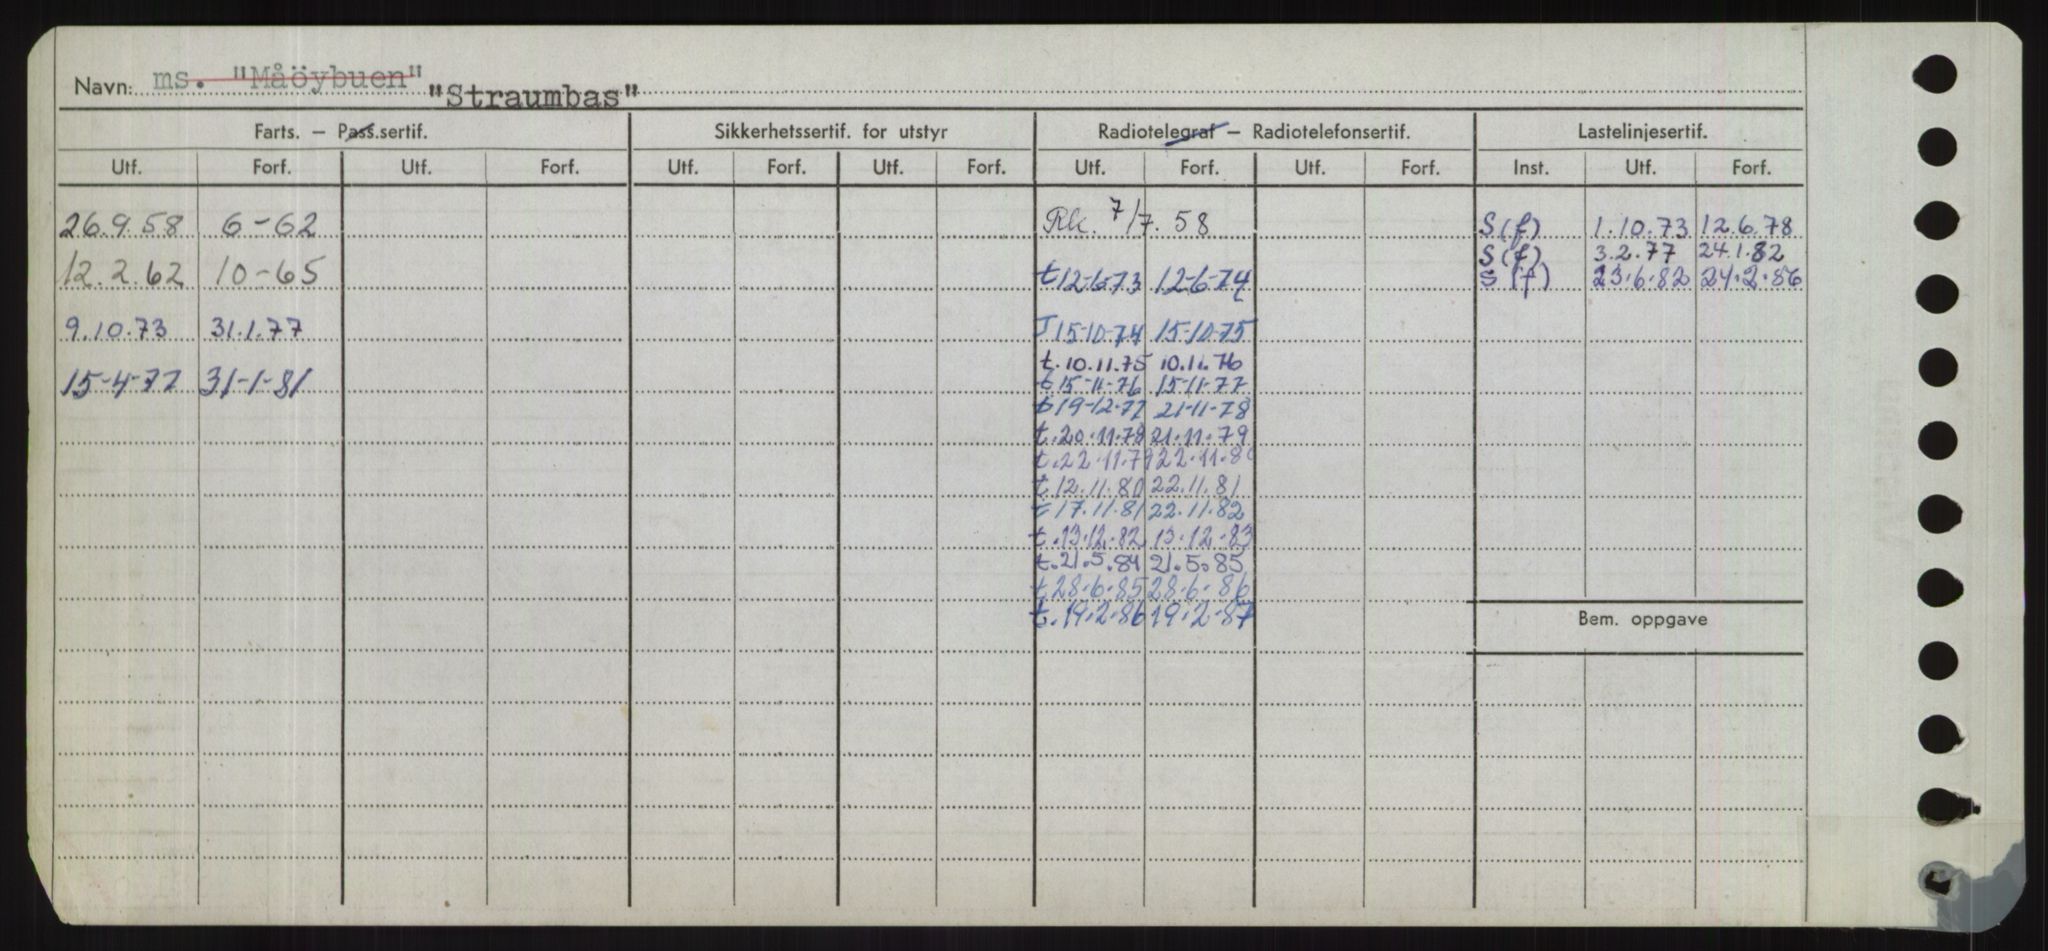 Navn: ms. "Måöybuen" "Straumbas"
Farts. – Pass.sertif. Sikkerhetssertif. for utstyr Radiotelegraf – Radiotelefonsertif. Lastelinjesertif.
Utf. Forf. Utf. Forf. Utf. Forf. Utf. Forf. Utf. Forf. Utf. Forf. Inst. Utf. Forf.
26.9.58 6-62 7/7.58 S(f) 1.10.73 12.6.78
S(f) 3.2.77 24.1.82
12.2.62 10-65 t12-6-73 12-6-74 S(f) 23.6.82 24.2.86
9.10.73 31.1.77 T15-10-74 15-10-75
t.10.11.75 10.11.76
15-4-77 31-1-81 t15-11-76 15-11-77
t19-12-77 21-11-78
t.20.11.78 21.11.79
t.22.11.79 22.11.80
t12.11.80 22.11.81
t17.11.81 22.11.82
t.13.12.82 13.12.83
t.21.5.84 21.5.85
t28.6.85 28.6.86
t.19.2.86 19.2.87
Bem. oppgave